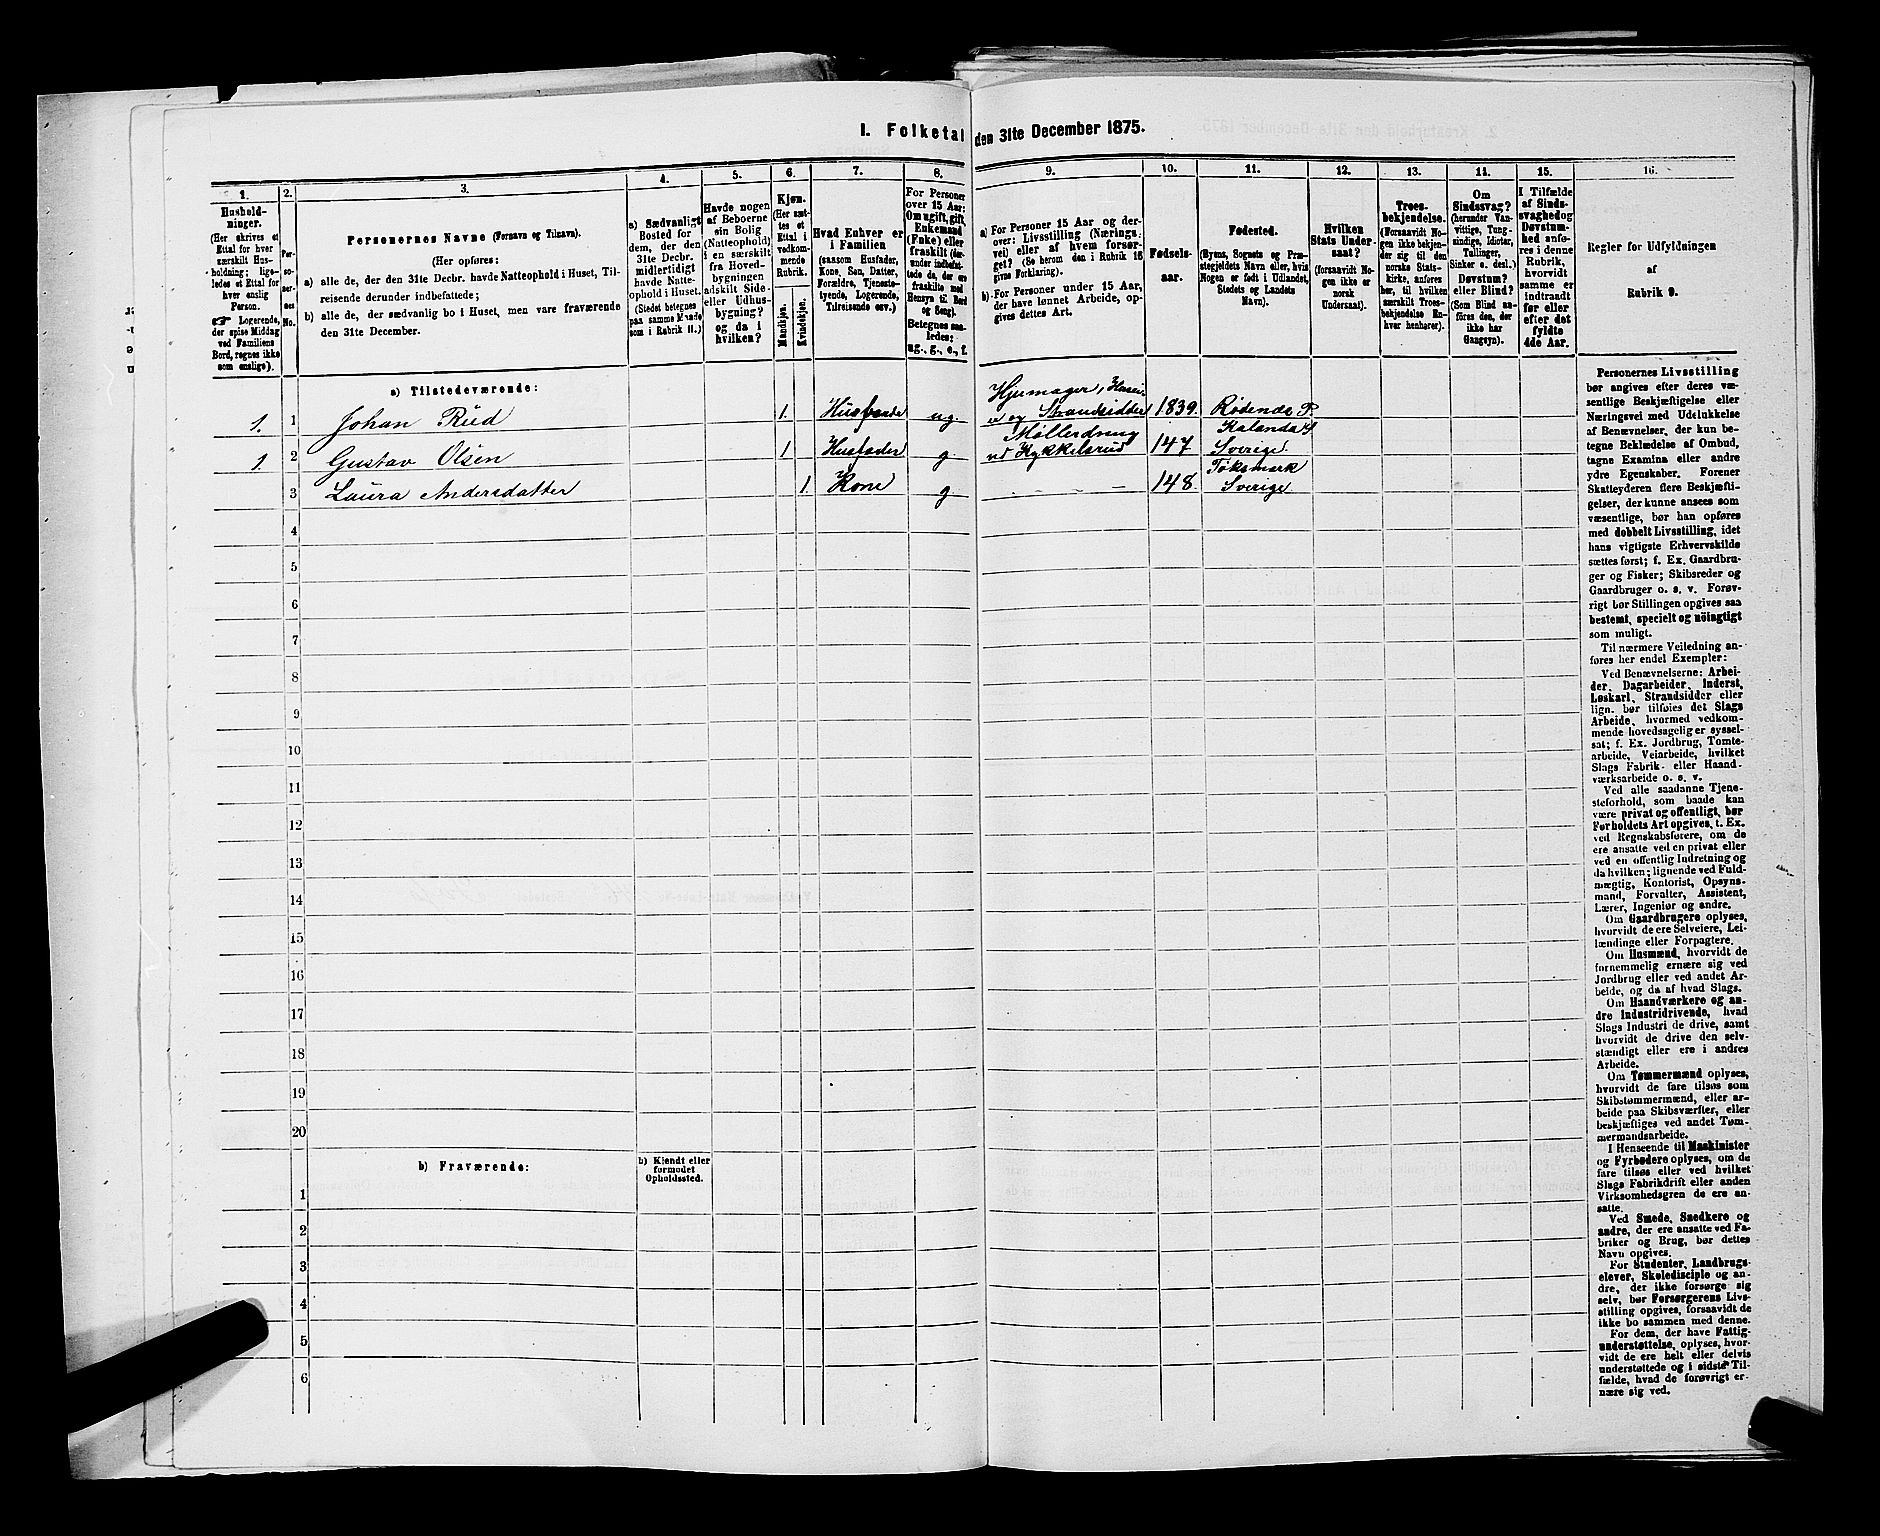 I. Folketal den 31te December 1875.
1. 2. 3. 4. 5. 6. 7. 8. 9. 10. 11. 12. 13. 14. 15. 16.
Hushold-
ninger.
(Her skrives et
Ettal for hver
særskilt Hus-
holdning; lige-
ledes et Ettal for
hver enslig
Person.
☞ Logerende,
der spise Middag
ved Familiens
Bord, regnes ikke
som enslige).
Per-
so-
ner-
nes
No.
Personernes Navne (Fornavn og Tilnavn).
(Her opføres:
a) alle de, der den 31te Decbr. havde Natteophold i Huset, Til-
reisende derunder indbefattede;
b) alle de, der sædvanlig bo i Huset, men vare fraværende
den 31te December.
a) Sædvanligt
Bosted for
dem, der den
31te Decbr.
midlertidigt
havde Natte-
ophold i Huset.
(Stedet betegnes
paa samme Maade
som i Rubrik 11.)
Havde nogen
af Beboerne
sin Bolig
(Natteophold)
i en særskilt
fra Hoved-
bygningen
adskilt Side-
eller Udhus-
bygning?
og da i
hvilken?
Kjøn.
(Her sæt-
tes et
Ettal i
vedkom-
mende
Rubrik.
Mandkjøn.
Kvindekjøn.
Hvad Enhver er
i Familien
(saasom Husfader,
Kone, Søn, Datter,
Forældre, Tjeneste-
tyende, Logerende,
Tilreisende osv.)
For Personer
over 15 Aar:
Om ugift, gift,
Enkemand
(Enke) eller
fraskilt (der-
under indbefat-
tede de, der ere
fraskilte med
Hensyn til Bord
og Seng).
Betegnes saa-
ledes:
ug., g., e., f.
a) For Personer 15 Aar og der-
over: Livsstilling (Nærings-
vei) eller af hvem forsør-
get? (Se herom den i Rubrik 16
givne Forklaring).
b) For Personer under 15 Aar,
der have lønnet Arbeide, op-
gives dettes Art.
Fødsels-
aar.
Fødested.
(Byens, Sognets og Præ-
stegjeldets Navn eller, hvis
Nogen er født i Udlandet,
Stedets og Landets
Navn).
Hvilken
Stats Under-
saat?
(forsaavidt No-
gen ikke er
norsk
Undersaat).
Troes-
bekjendelse.
(Forsaavidt No-
gen ikke bekjen-
der sig til den
norske Stats-
kirke, anføres
her, til hvilken
særskilt Troes-
bekjendelse En-
hver henhører).
Om
Sindssvag?
(herunder Van-
vittige, Tung-
sindige, Idioter,
Tullinger,
Sinker o. desl.)
Døvstum?
eller Blind?
(Som Blind an-
føres den, der
ikke har
Gangsyn).
I Tilfælde
af Sinds-
svaghed og
Døvstum-
hed anfø-
res i denne
Rubrik,
hvorvidt
samme er
indtraadt
før eller
efter det
fyldte
4de Aar.
Regler for Udfyldningen
af
Rubrik 9.
a) Tilstedeværende:
1. 1 Johan Rud 1. Husfader ug. Hjumager, Huseier og Strandsidder 1839. Rødenæs P.
1. 2 Gustav Olsen 1 Husfader g. Møllerdreng ved Kykkelsrud 147 Sverige
3 Laura Andersdatter 1. Kone g. - - - - 148. Töksmark Sverige
4
5
6
7
8
9
10
11
12
13
14
15
16
17
18
19
20
b) Fraværende:
b) Kjendt eller
formodet
Opholdssted.
1
2
3
4
5
6
Personernes Livsstilling
bør angives efter deres væ-
sentlige Beskjæftigelse eller
Næringsvei med Udelukkelse
af Benævnelser, der kun be-
tegne Beklædelse af Ombud,
tagne Examina eller andre
ydre Egenskaber. Forener
Skatteyderen flere Beskjæfti-
gelser, der kunne ansees som
væsentlige, bør han opføres
med dobbelt Livsstilling, idet
hans vigtigste Erhvervskilde
sættes først; f. Ex. Gaardbru-
ger og Fisker; Skibsreder og
Gaardbruger o. s. v. Forøv-
rigt bør Stillingen opgives saa
bestemt, specielt og nöiagtigt
som muligt.
Til nærmere Veiledning an-
føres her endel Exempler:
Ved Benævnelserne: Arbei-
der, Dagarbeider, Inderst,
Løskarl, Strandsidder eller
lign. bør tilføies det Slags
Arbeide, hvormed vedkom-
mende hovedsagelig er syssel-
sat; f. Ex. Jordbrug, Tomte-
arbeide, Veiarbeide, hvilket
Slags Fabrik- eller Haand-
værksarbeide o. s. v.
Ved alle saadanne Tjene-
steforhold, som baade kan
være privat og offentligt, bør
Forholdets Art opgives, t. Ex.
ved Regnskabsførere, om de
ere ansatte ved en privat eller
ved en offentlig Indretning og
da hvilken; lignende ved Fuld-
mægtig, Kontorist, Opsyns-
mand, Forvalter, Assistent,
Lærer, Ingeniør og andre.
Om Gaardbrugere oplyses,
hvorvidt de ere Selveiere, Lei-
lændinge eller Forpagtere.
Om Husmænd, hvorvidt de
fornemmelig ernære sig ved
Jordbrug eller ved andet Ar-
beide, og da af hvad Slags.
Om Haandværkere og an-
dre Industridrivende, hvad
Slags Industri de drive, samt
hvorvidt de drive den selv-
stændigt eller ere i andres
Arbeide.
Om Tømmermænd oplyses,
hvorvidt de fare tilsøs som
Skibstømmermænd, eller ar-
beide paa Skibsværfter, eller
beskjæftiges ved andet Tøm-
mermandsarbeide.
I Henseende til Maskinister
og Fyrbødere oplyses, om de
fare tilsøs eller ved hvilket
Slags Fabrikdrift eller anden
Virksomhedsgren de ere an-
satte.
Ved Smede, Snedkere og
andre, der ere ansatte ved Fa-
briker og Brug, bør dettes
Navn opgives.
For Studenter, Landbrugs-
elever, Skoledisciple og an-
dre, der ikke forsørge sig
selv, bør Forsørgerens Livs-
stilling opgives, forsaavidt de
ikke bo sammen med denne.
For dem, der have Fattig-
understøttelse, oplyses, hvor-
vidt de ere helt eller delvis
understøttede og i sidste Til-
fælde, hvad de forøvrigt er-
nære sig ved.